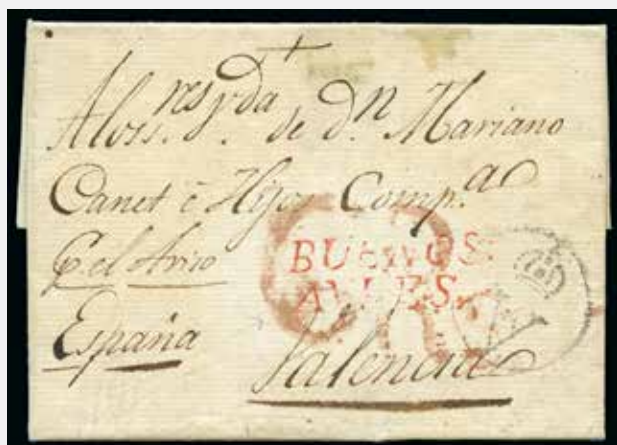 A los s.res v.da de d.n Mariano
Canet é Hijo Comp.a
P. el Aviso
BUENOS
AYRES
España
Valencia